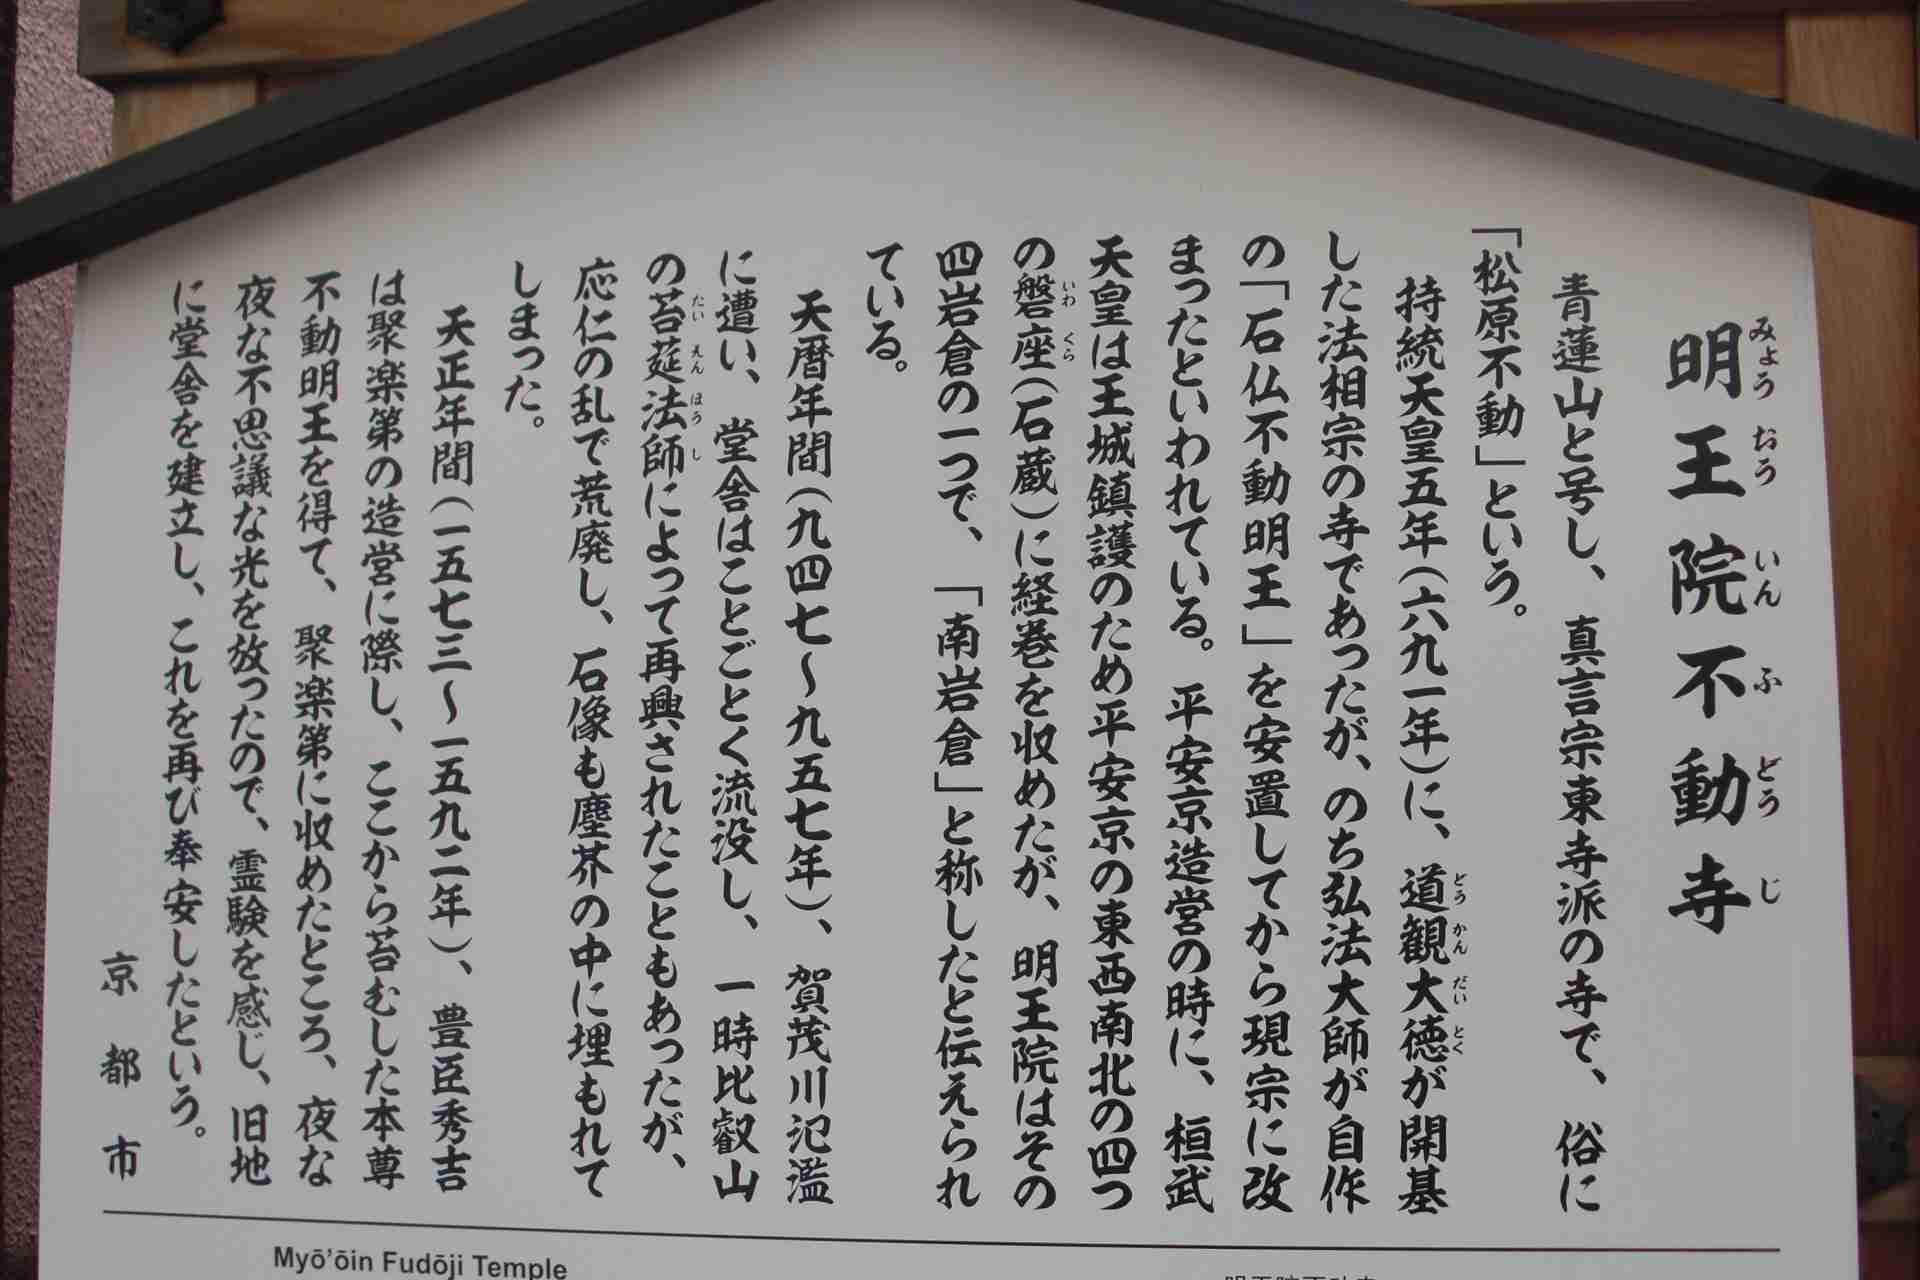 明王院不動寺
みょうおういんふどうじ
青蓮山と号し、真言宗東寺派の寺で、俗に
「松原不動」という。
持統天皇五年(六九一年)に、道観大徳が開基
どうかんだいとく
した法相宗の寺であったが、のち弘法大師が自作
の「石仏不動明王」を安置してから現宗に改
まったといわれている。平安京造営の時に、桓武
天皇は王城鎮護のため平安京の東西南北の四つ
の磐座(石蔵)に経巻を収めたが、明王院はその
いわくら
四岩倉の一つで、「南岩倉」と称したと伝えられ
ている。
天暦年間(九四七～九五七年)、賀茂川氾濫
に遭い、堂舎はことごとく流没し、一時比叡山
の苔莚法師によって再興されたこともあったが、
たいえんほうし
応仁の乱で荒廃し、石像も塵芥の中に埋もれて
しまった。
天正年間(一五七三～一五九二年)、豊臣秀吉
は聚楽第の造営に際し、ここから苔むした本尊
不動明王を得て、聚楽第に収めたところ、夜な
夜な不思議な光を放ったので、霊験を感じ、旧地
に堂舎を建立し、これを再び奉安したという。
京都市
Myō’ōin Fudōji Temple